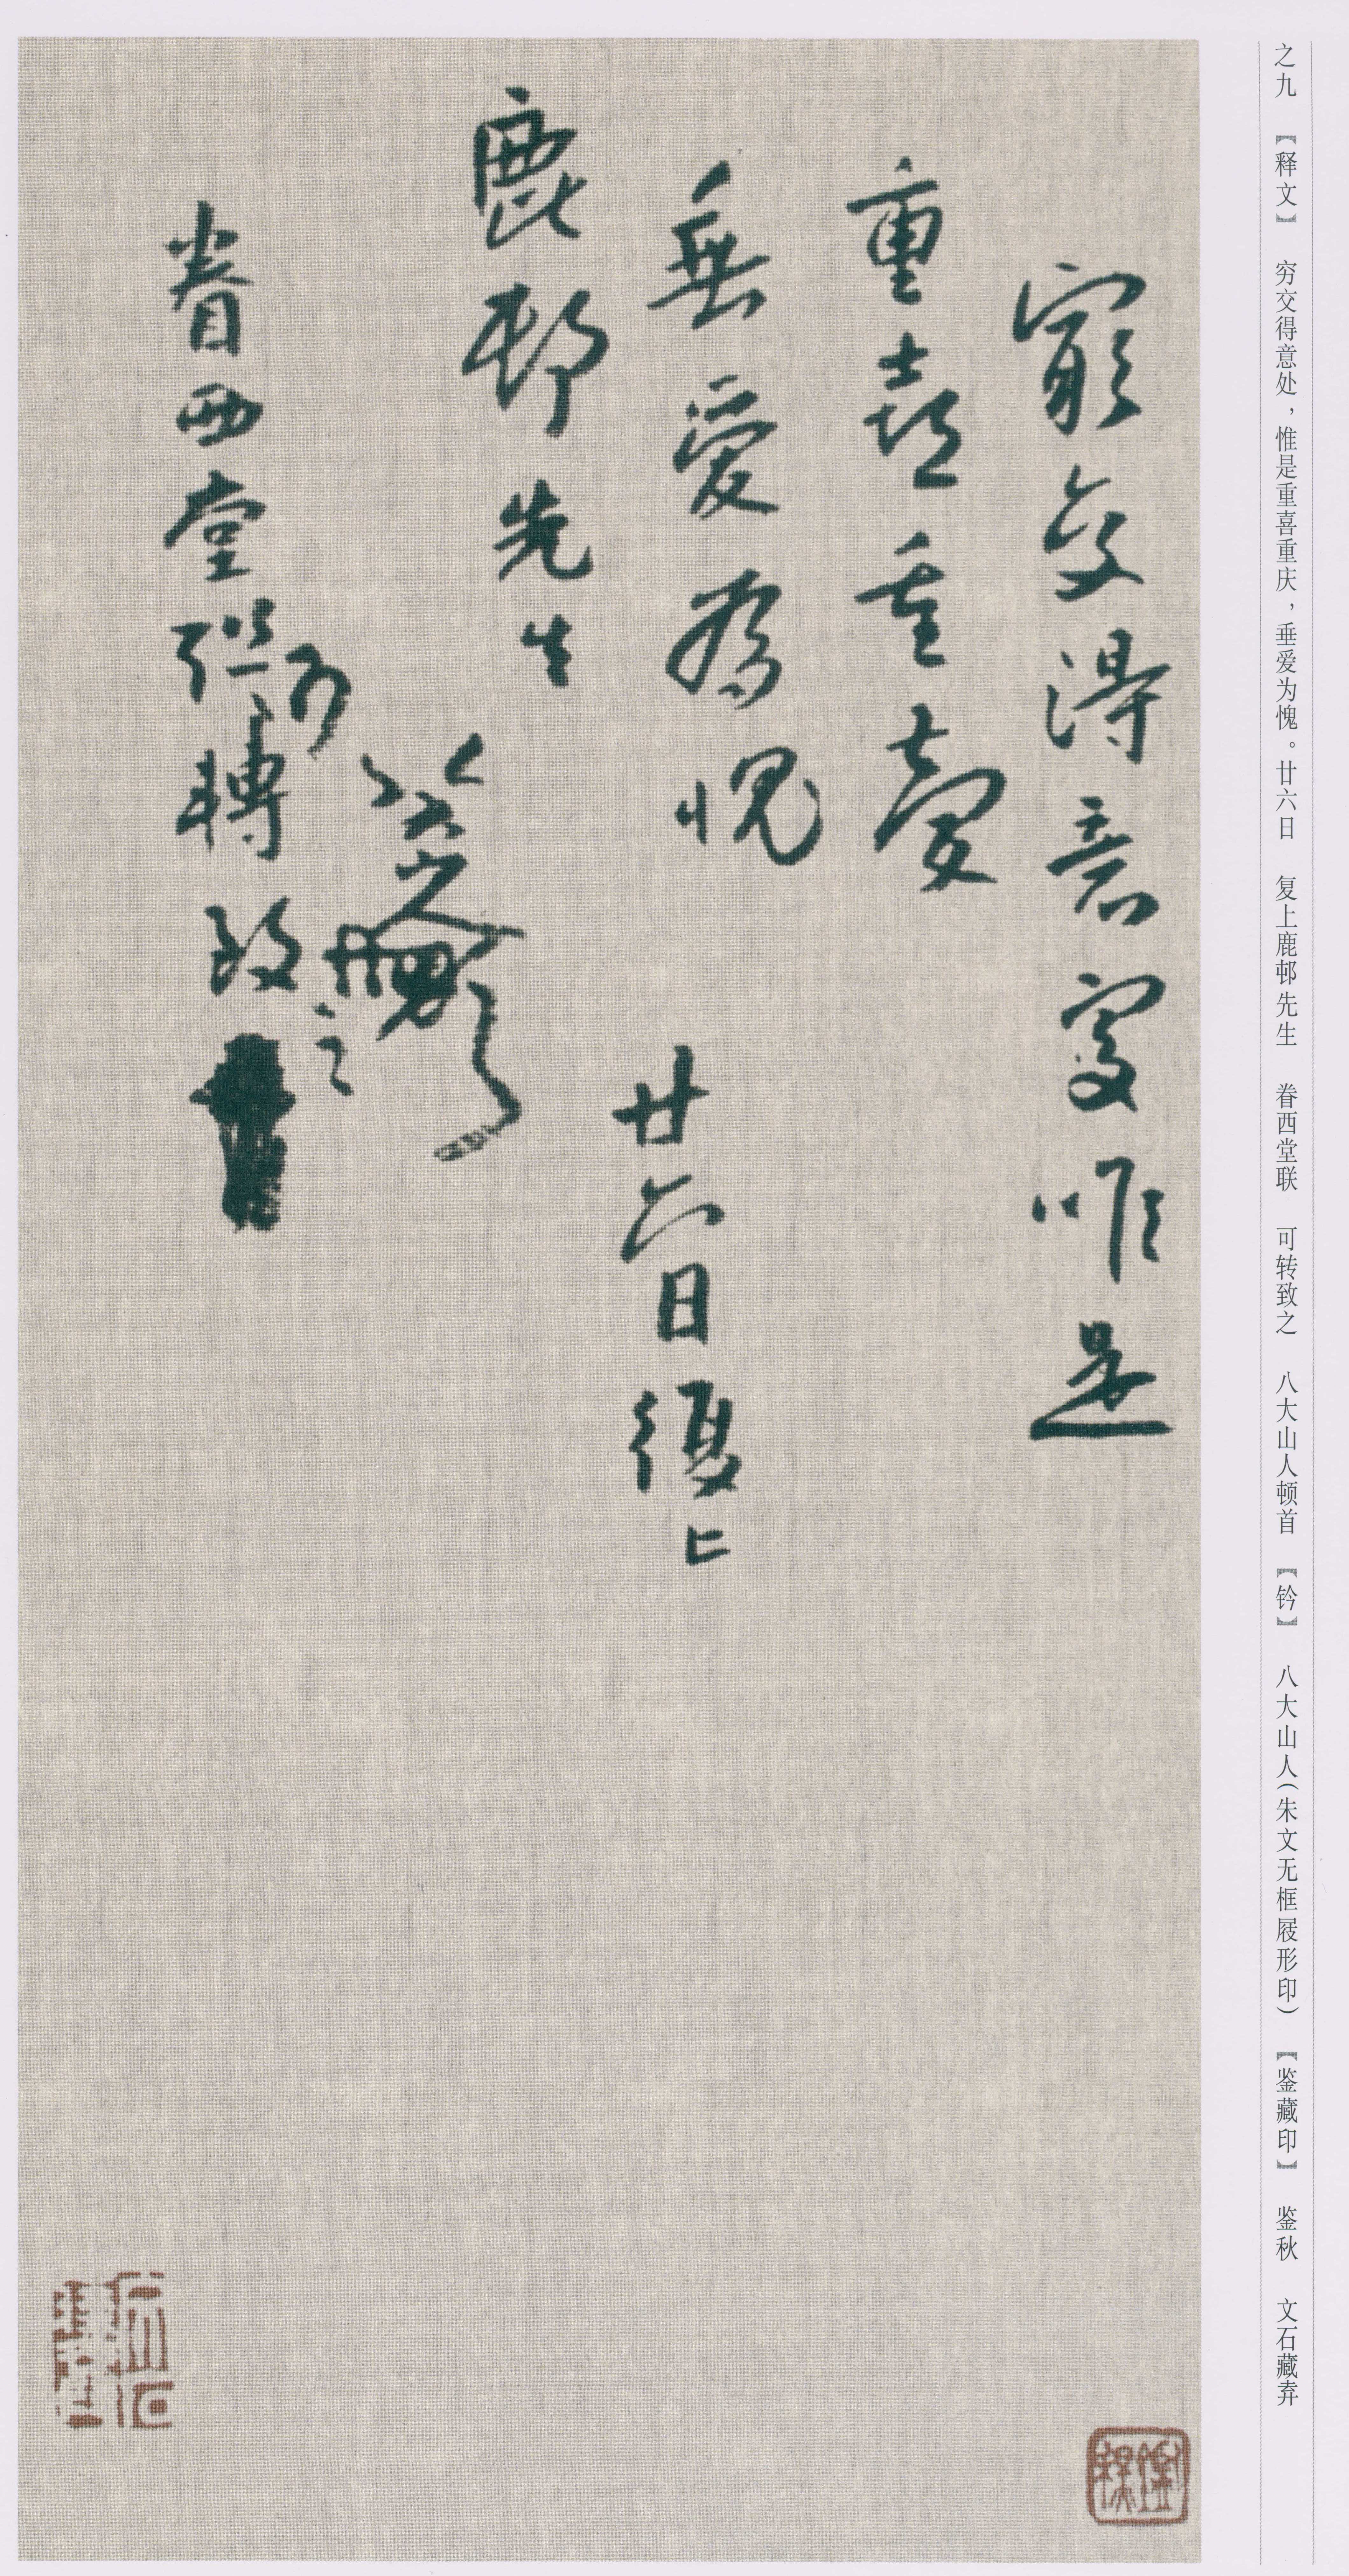 之九 【释文】 穷交得意处，惟是重喜重庆，垂爱为愧。廿六日 复上鹿邨先生 眷西堂联 可转致之 八大山人顿首 【钤】 八大山人（朱文无框屐形印） 【鉴藏印】 鉴秋 文石藏弆
窮交得意處唯是
重喜重慶
垂愛為愧 廿六日復上
鹿邨先生
八大山人頓首
眷西堂聯可轉致之